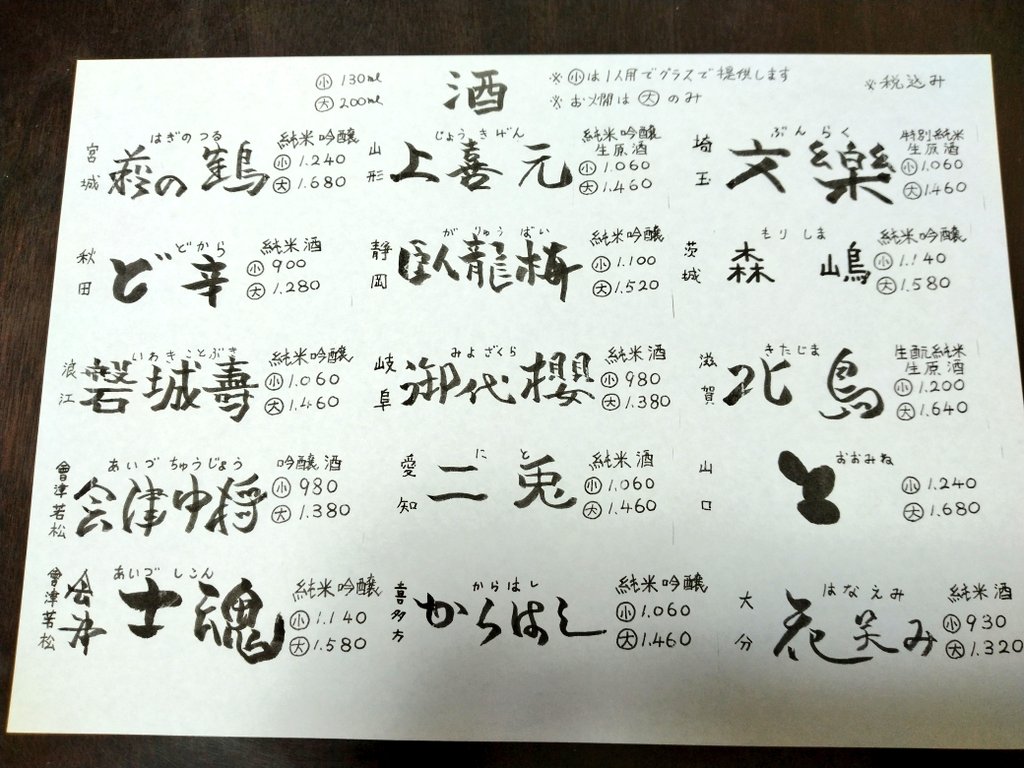 酒
小 130ml
大 200ml
※小は1人用でグラスで提供します
※お燗は大のみ
※税込み
宮城
はぎのつる
萩の鶴
純米吟醸
小 1.240
大 1.680
山形
じょうきげん
上喜元
純米吟醸
生原酒
小 1.060
大 1.460
埼玉
ぶんらく
文樂
特別純米
生原酒
小 1.060
大 1.460
秋田
どから
ど辛
純米酒
小 900
大 1.280
静岡
がりゅうばい
臥龍梅
純米吟醸
小 1.100
大 1.520
茨城
もりしま
森嶋
純米吟醸
小 1.140
大 1.580
浪江
いわきことぶき
磐城壽
純米吟醸
小 1.060
大 1.460
岐阜
みよざくら
御代櫻
純米酒
小 980
大 1.380
滋賀
きたじま
北島
生酛純米
生原酒
小 1.200
大 1.640
會津若松
あいづちゅうじょう
会津中将
吟醸酒
小 980
大 1.380
愛知
にと
二兎
純米酒
小 1.060
大 1.460
山口
おおみね
小 1.240
大 1.680
會津若松
あいづしこん
会津士魂
純米吟醸
小 1.140
大 1.580
喜多方
からはし
からはし
純米吟醸
小 1.060
大 1.460
大分
はなえみ
花笑み
純米酒
小 930
大 1.320